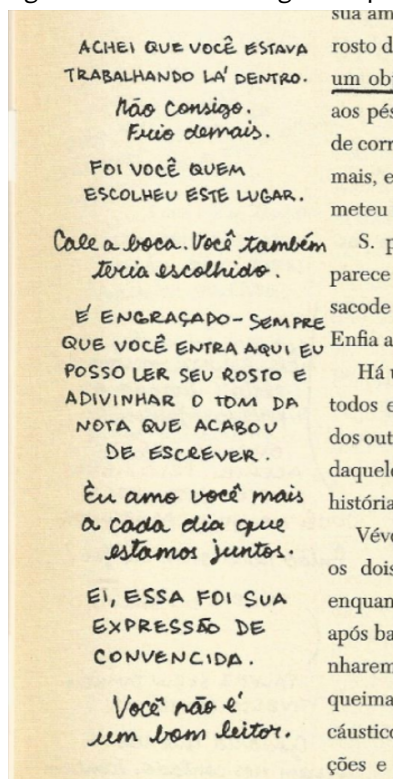 ACHEI QUE VOCÊ ESTAVA
TRABALHANDO LÁ DENTRO.
Não consigo.
Frio demais.
FOI VOCÊ QUEM
ESCOLHEU ESTE LUGAR.
Cale a boca. Você também
teria escolhido.
É ENGRAÇADO - SEMPRE
QUE VOCÊ ENTRA AQUI EU
POSSO LER SEU ROSTO E
ADIVINHAR O TOM DA
NOTA QUE ACABOU
DE ESCREVER.
Eu amo você mais
a cada dia que
estamos juntos.
EI, ESSA FOI SUA
EXPRESSÃO DE
CONVENCIDA.
Você não é
um bom leitor.
sua am
rosto d
um ob
aos pés
de corr
mais, e
meteu
S. p
parece
sacode
Enfia a
Há
todos e
dos out
daquele
história
Véve
os dois
enquan
após ba
nharem
queima
cáustico
ções e